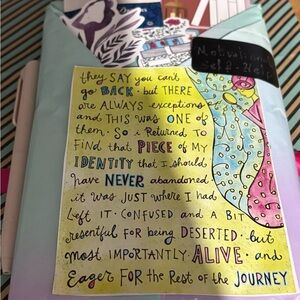 Motivational
Self-Help
they SAY you can't
go BACK · but THERE
are ALWAYS exceptions
and THIS was ONE of
them. So i ReTURNED TO
FIND that PIECE of MY
IDENTITY that I should
have NEVER abandoned
it was JUST where I HAD
left it · confused and a BIT
resentful FOR being DESERTED · but
most IMPORTANTLY ALIVE · and
Eager FOR the Rest of the JOURNEY